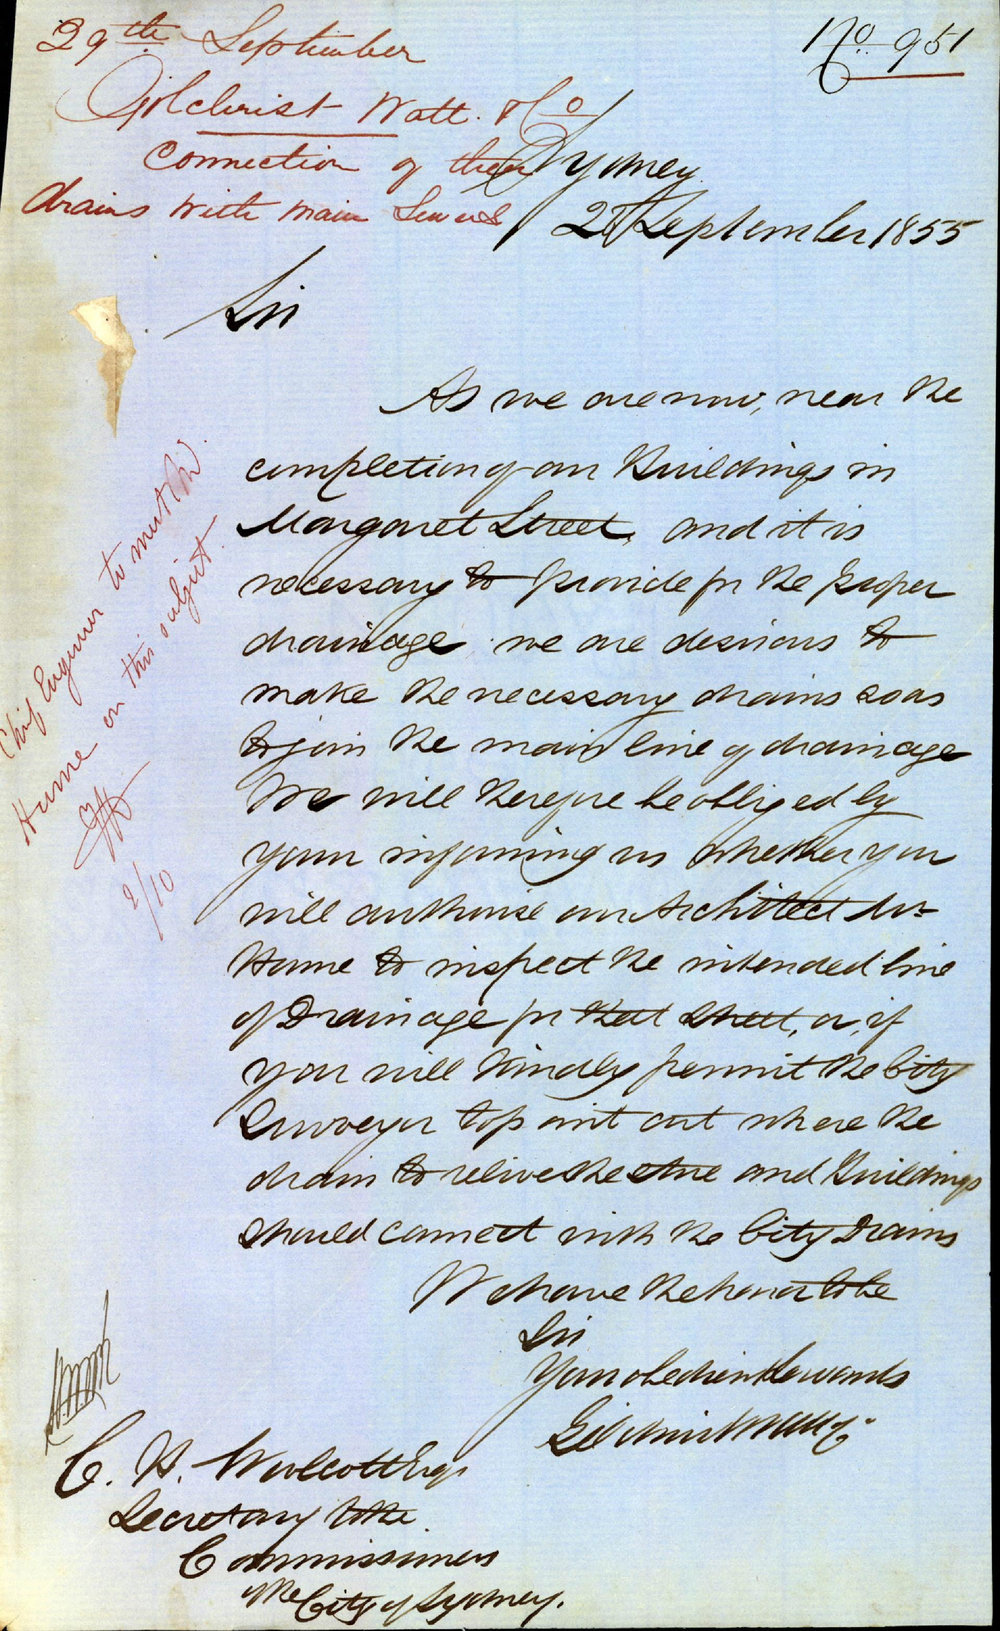 29th September
No 951
Gilchrist Watt & Co
Connection of their
drains with main Sewers
Sydney
September 1855
Sir
As we are now, near the
completion of our Buildings in
Margaret Street, and it is
necessary to provide for the proper
drainage we are desirous to
make the necessary drains so as
to join the main line of drainage
We will therefore be obliged by
your informing us whether you
will authorise our Architect Mr
Hume to inspect the intended line
of Drainage for that Street, or, if
you will kindly permit the City
Surveyor to point out where the
drain to relive the Store and Buildings
should connect with the City Drains
We have the honor to be
Sir
Your obedient Servants
Gilchrist Watt & Co
Chief Engineer to meet Mr
Hume on this subject.
2/10
C. H. Woolcott Esqr
Secretary to the
Commissioners
of the City of Sydney.